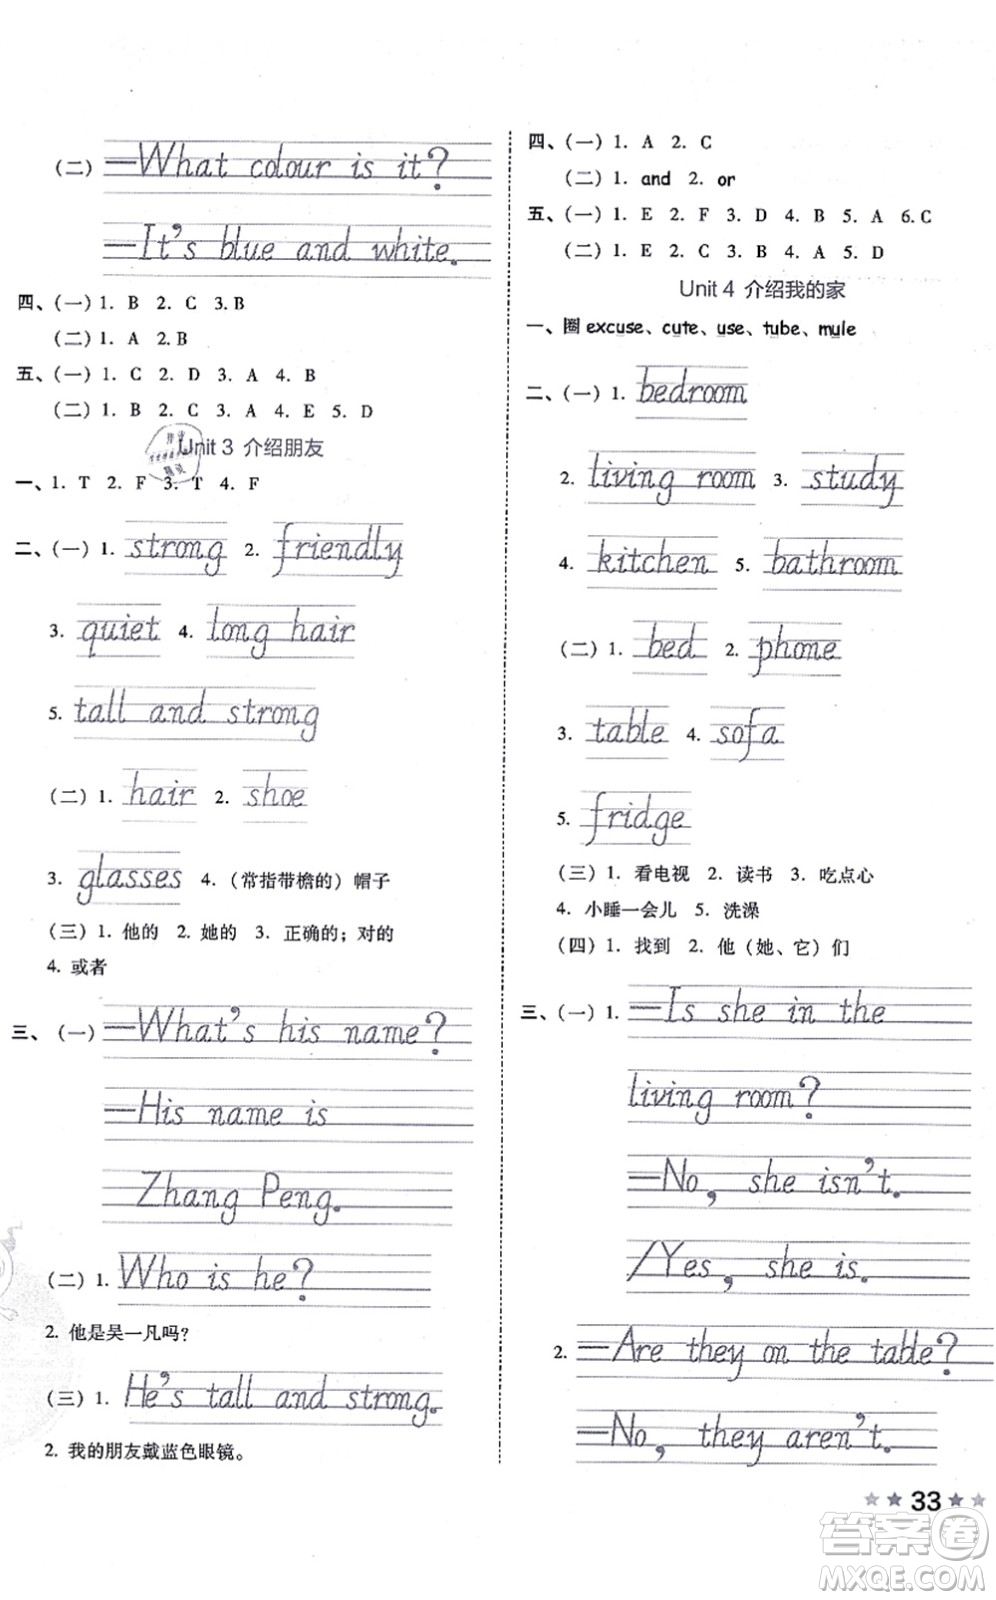 (二) —What colour is it?
—It's blue and white.
四、(一) 1. B 2. C 3. B
(二) 1. A 2. B
五、(一) 1. C 2. D 3. A 4. B
(二) 1. B 2. C 3. A 4. E 5. D
Unit 3 介绍朋友
一、1. T 2. F 3. T 4. F
二、(一) 1. strong 2. friendly
3. quiet 4. long hair
5. tall and strong
(二) 1. hair 2. shoe
3. glasses 4. (常指带檐的) 帽子
(三) 1. 他的 2. 她的 3. 正确的; 对的
4. 或者
三、(一) —What's his name?
—His name is
Zhang Peng.
(二) 1. Who is he?
2. 他是吴一凡吗?
(三) 1. He's tall and strong.
2. 我的朋友戴蓝色眼镜。
四、(一) 1. A 2. C
(二) 1. and 2. or
五、(一) 1. E 2. F 3. D 4. B 5. A 6. C
(二) 1. E 2. C 3. B 4. A 5. D
Unit 4 介绍我的家
一、圈 excuse、cute、use、tube、mule
二、(一) 1. bedroom
2. living room 3. study
4. kitchen 5. bathroom
(二) 1. bed 2. phone
3. table 4. sofa
5. fridge
(三) 1. 看电视 2. 读书 3. 吃点心
4. 小睡一会儿 5. 洗澡
(四) 1. 找到 2. 他（她、它）们
三、(一) 1. —Is she in the
living room?
—No, she isn't.
/Yes, she is.
2. —Are they on the table?
—No, they aren't.
33
答案卷
MXQE.COM